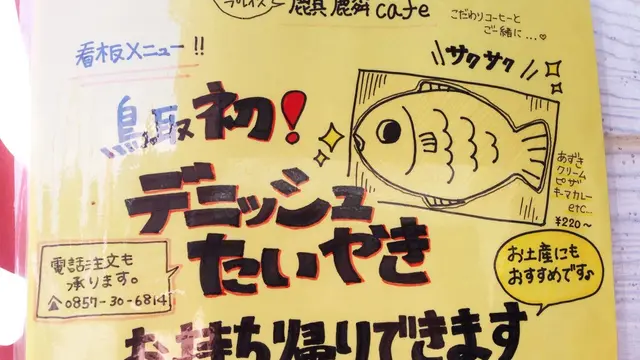 プレイス 麒麟cafe
こだわりコーヒーと
ご一緒に...♡
看板メニュー!!
サクサク
鳥取初!
あずき
クリーム
ピザ
キーマカレー
etc...
¥220~
デニッシュ
たいやき
電話注文も
承ります。
☎0857-30-6814
お土産にも
おすすめです♪
お持ち帰りできます